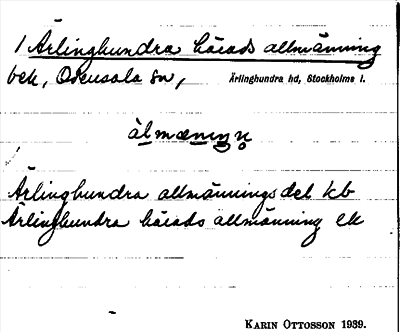 1 Ärlinghundra härads allmänning
bek, Odensala sn, Ärlinghundra hd, Stockholms l.
àlmæniŋ
Ärlinghundra allmänningsdel kb
Ärlinghundra härads allmänning ek
KARIN OTTOSSON 1939.